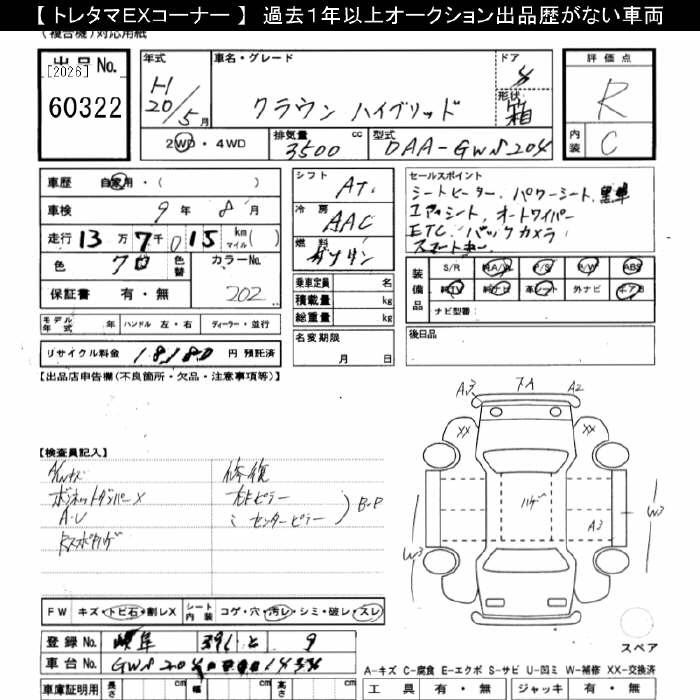 【 トレタマEXコーナー 】 過去1年以上オークション出品歴がない車両
(複合機)対応用紙
出品 No.
[2026]
60322
年式
H
20/5月
車名・グレード
クラウン ハイブリッド
ドア
4
形状
箱
評価点
R
内装
C
2WD・4WD
排気量
3500 cc
型式
DAA-GWS204
車歴 自家用・( )
車検 9年 8月
走行 13万7千015 km マイル( )
色 クロ 色替 カラーNo.
保証書 有・無 202
シフト AT
冷房 AAC
燃料 ガソリン
乗車定員 名
積載量 kg
総重量 kg
セールスポイント
シートヒーター、パワーシート、黒革
エアシート、オートワイパー
ETC、バックカメラ
スマートキー
装備品 S/R 純A/W P/S P/W ABS
純TV 純ナビ 革シート 外ナビ エアB
ナビ型番
モデル年式 年 ハンドル 左・右 ディーラー・並行
リサイクル料金 18180 円 預託済
名変期限
月 日
後日品
【出品店申告欄(不良箇所・欠品・注意事項等)】
【検査員記入】
修復
ボンネットダンパーX
右Fピラー
A・U
センターピラー
B・P
A3 フA A2
XX XX
ハゲ
A3
W3 W3
スペア
FW キズ・トビ石・割レX シート内装 コゲ・穴・汚レ・シミ・破レ・スレ
登録 No. 岐阜 391 と 9
車台 No. GWS204
A-キズ C-腐食 E-エクボ S-サビ U-凹ミ W-補修 XX-交換済
車庫証明用 長さ cm 幅 cm 高さ cm
工具 有・無 ジャッキ 有・無